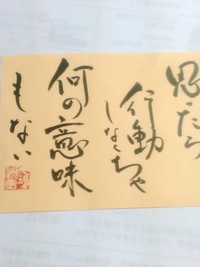 思ったら
行動
しなくちゃ
何の意味
もない